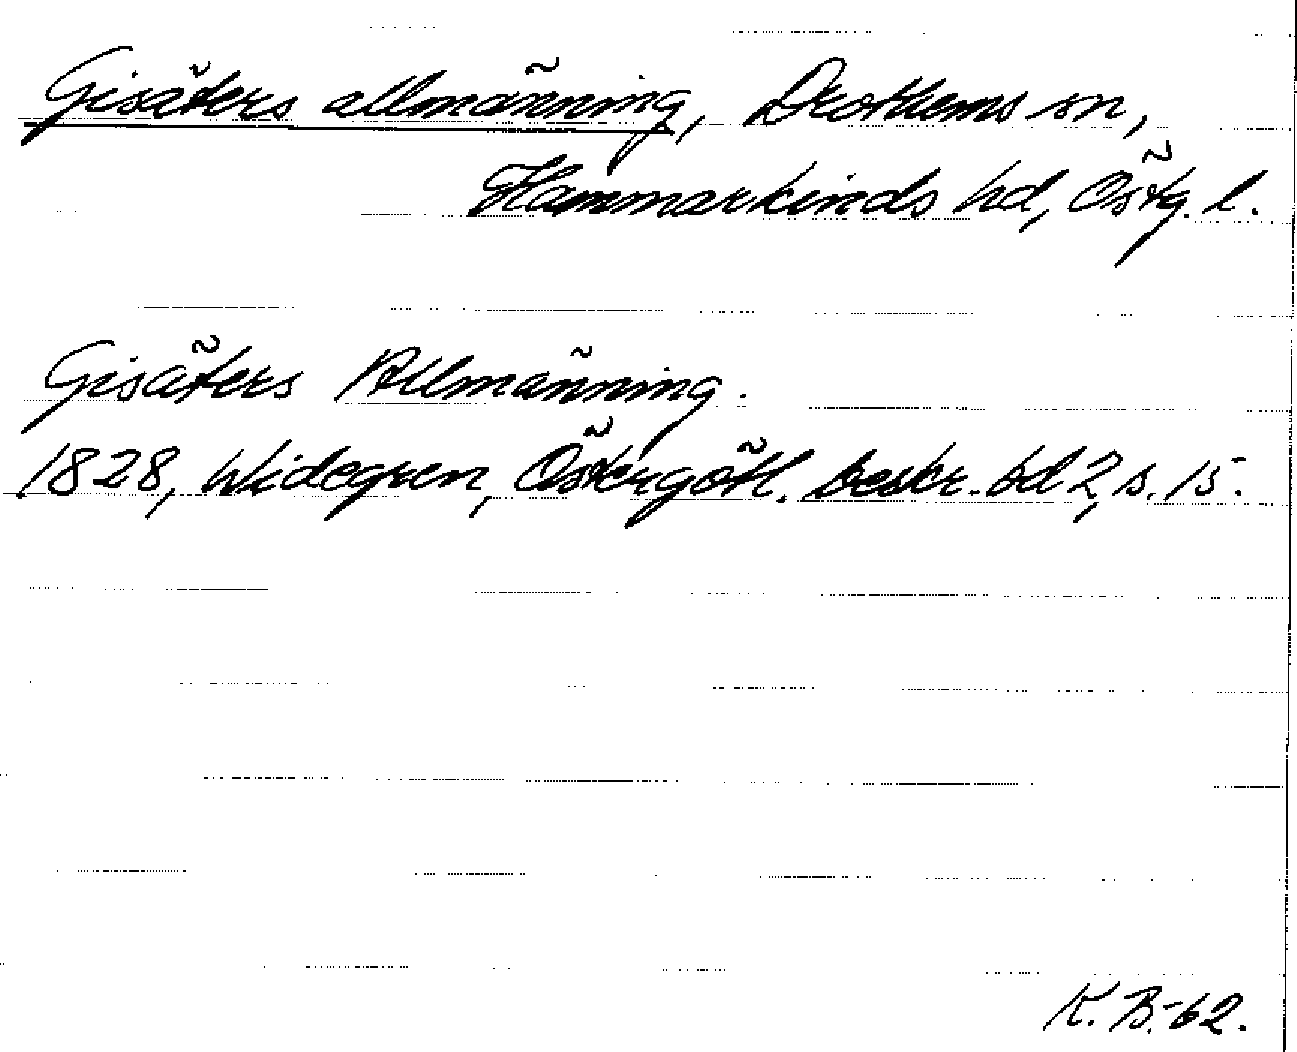 Gisäters allmänning, Drothems sn,
Hammarkinds hd, Östg. l.
Gisäters Allmänning.
1828, Widegren, Östergötl. beskr. bd 2, s. 15.
K. B.-62.